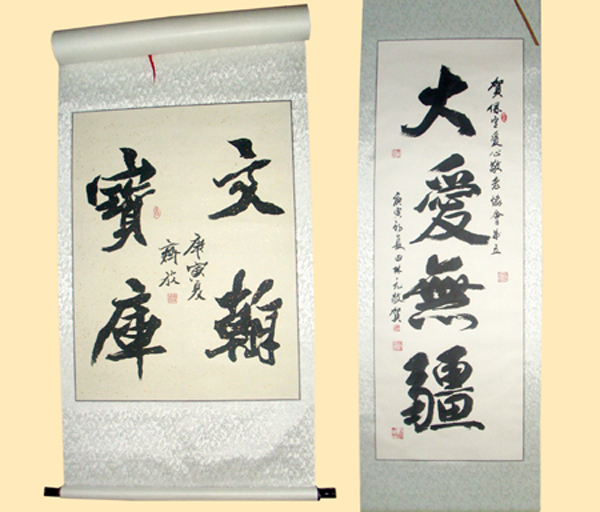 文翰
寶庫
庚寅夏
齊放
賀保定愛心敬老協會成立
大愛無疆
庚寅初夏田林元敬賀